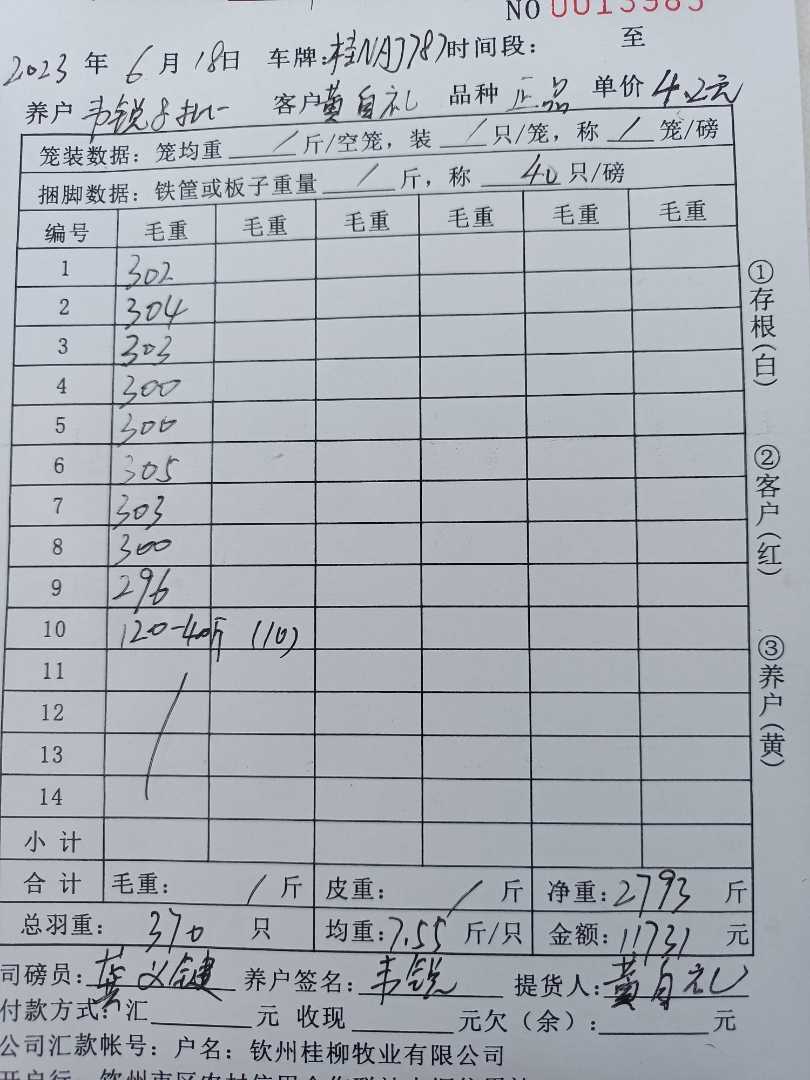 NO 0013985
2023 年 6 月 18 日 车牌: 桂NAJ787 时间段: 至
养户 韦锐 客户 黄自礼 品种 正品 单价 4.2元
笼装数据: 笼均重 / 斤/空笼, 装 / 只/笼, 称 / 笼/磅
捆脚数据: 铁筐或板子重量 / 斤, 称 40 只/磅
编号 毛重 毛重 毛重 毛重 毛重 毛重
1 302
2 304
3 303
4 300
5 300
6 305
7 303
8 300
9 296
10 120-40斤 (10)
11
12
13
14
小 计
合 计 毛重: / 斤 皮重: / 斤 净重: 2793 斤
总羽重: 370 只 均重: 7.55 斤/只 金额: 11731 元
①存根(白)
②客户(红)
③养户(黄)
司磅员: 义键 养户签名: 韦锐 提货人: 黄自礼
付款方式: 汇 元 收现 元欠(余): 元
公司汇款帐号: 户名: 钦州桂柳牧业有限公司